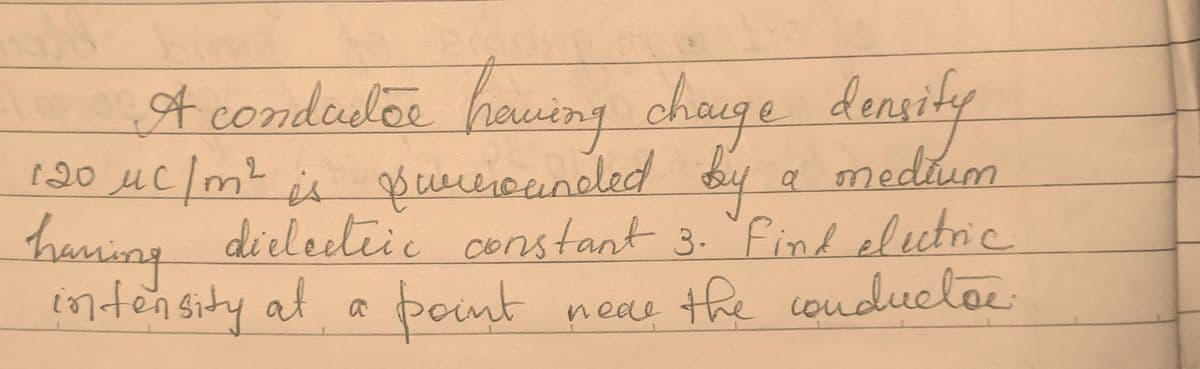 A conductor having charge density
120 μc/m² is surrounded by a medium
having dielectric constant 3. Find electric
intensity at a point near the conductor.